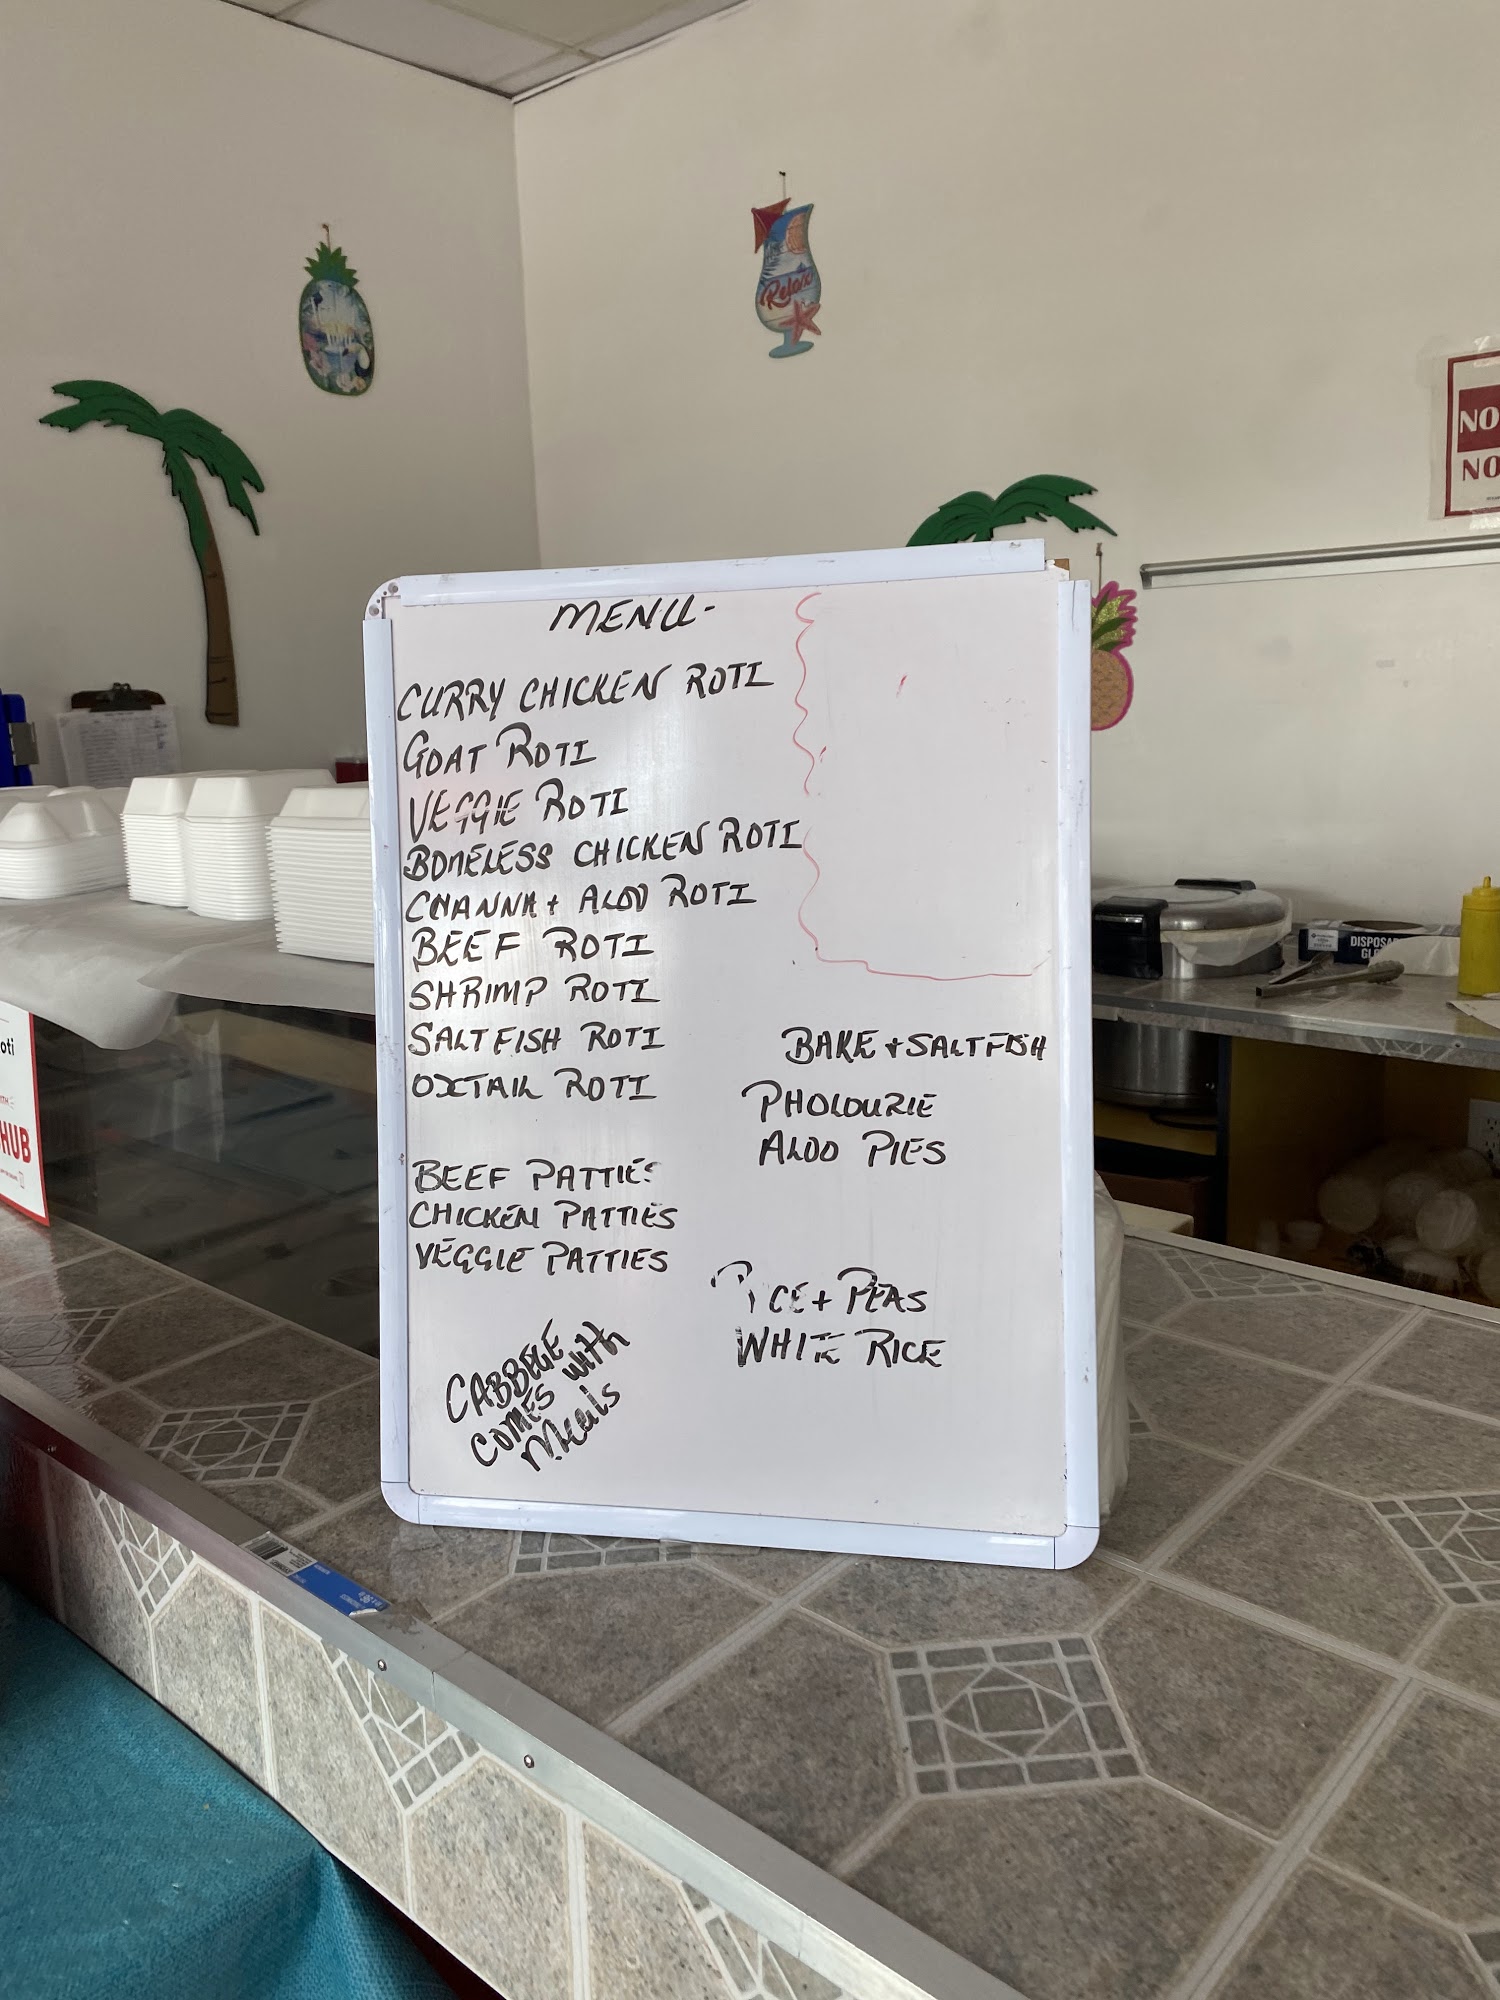 Relax
NO
NO
MENU-
CURRY CHICKEN ROTI
GOAT ROTI
VEGGIE ROTI
BONELESS CHICKEN ROTI
CHANNA + ALOO ROTI
BEEF ROTI
SHRIMP ROTI
SALTFISH ROTI
OXTAIL ROTI
BEEF PATTIES
CHICKEN PATTIES
VEGGIE PATTIES
CABBEGE
COMES WITH
Meals
BAKE + SALTFISH
PHOLOURIE
ALOO PIES
RICE + PEAS
WHITE RICE
DISPOSA
GL
oti
HUB